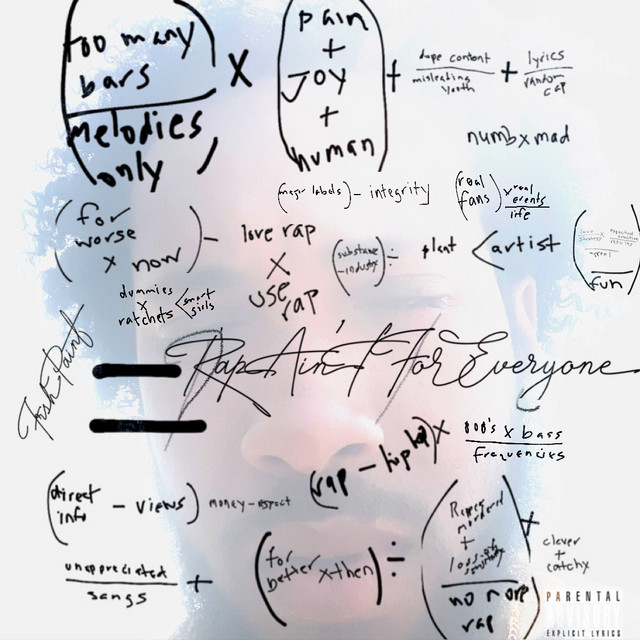 too many
bars
melodies
only
X
pain
+
Joy
+
human
+
dope content
misleading
youth
+
lyrics
random
cap
numb x mad
(major labels) - integrity
(real
fans) x real
events
life
(for
worse
x now) -
love rap
X
use
rap
(substance
- industry) ÷
plant < artist
fun
dummies
x
ratchets < smart
girls
= Rap Ain't For Everyone
(rap - hip hop) x
808's x bass
frequencies
(direct
info - views)
money - respect
unappreciated
songs
+
(for
better x then) ÷
+
no more
rap
clever
+
catchy
PARENTAL
ADVISORY
EXPLICIT LYRICS